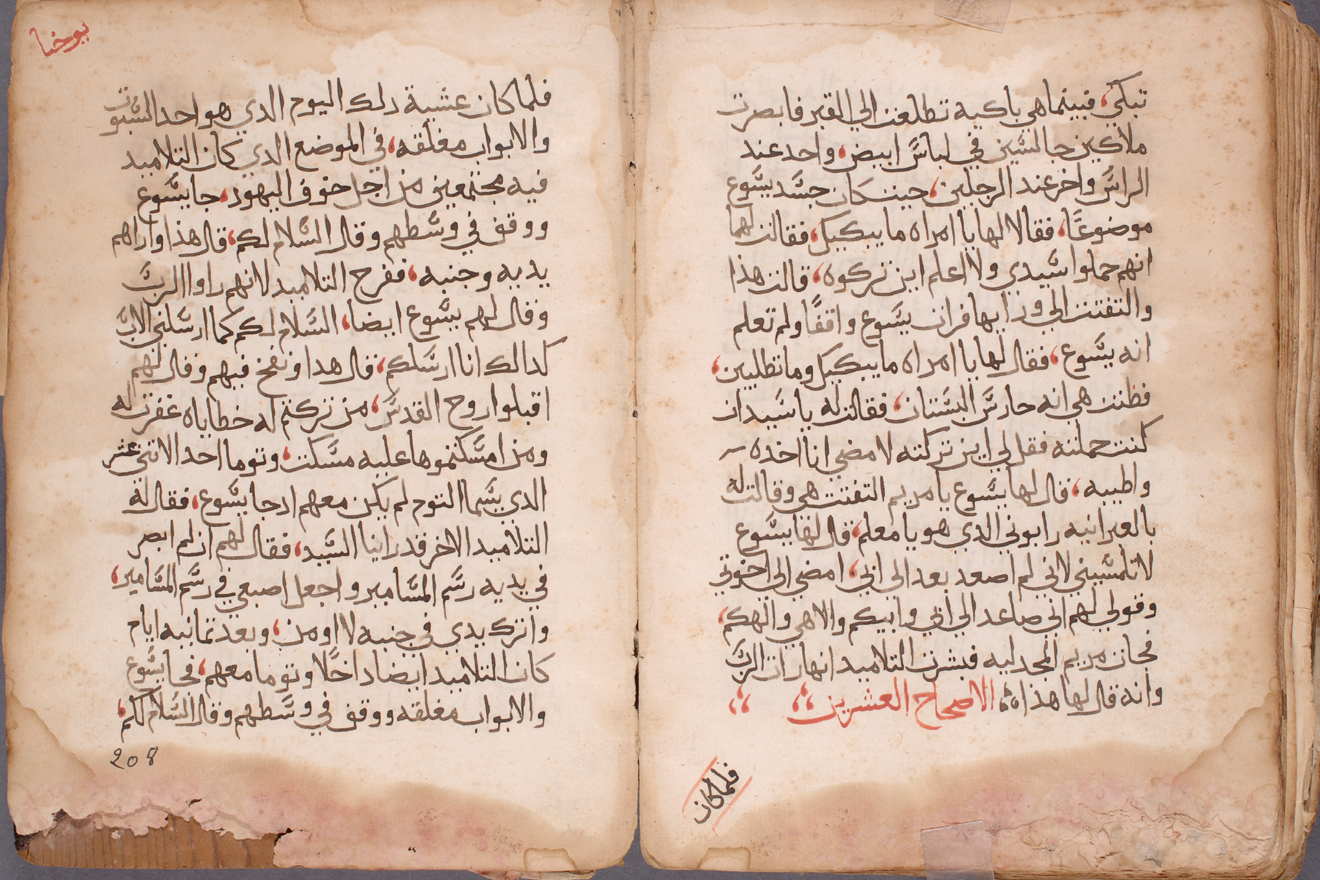 تبكي، فبينما هي باكية تطلعت الي القبر فابصرت
ملاكين جالسين في لباس ابيض، واحد عند
الراس واخر عند الرجلين، حيت كان جسد يسوع
موضوعًا، فقالا لها يا امراه ما يبكيكي، فقالت لهما
انهم حملوا سيدي ولا اعلم اين تركوه، قالت هذا
والتفتت الي ورايها فرات يسوع واقفًا ولم تعلم
انه يسوع، فقال لها يا امراه ما يبكيكي وما تطلبين،
فظنت هي انه حارس البستان، فقالت له يا سيد ان
كنت حملته فقل لي اين تركته لامضي انا اخده
واطيبه، قال لها يسوع يا مريم التفتت هي وقالت له
بالعبرانيه رابوني الدي هو يا معلم، قال لها يسوع
لا تلمسيني لاني لم اصعد بعد الى ابي، امضي الى اخوتي
وقولي لهم اني صاعد الي ابي وابيكم والاهي والهكم،
فجات مريم المجدليه فبشرت التلاميد انها رات الرب
وانه قال لها هذا، الاصحاح العشرين
فلما كان
يوحنا
فلما كان عشية دلك اليوم الدي هو احد السبوت
والابواب مغلقه، في الموضع الدي كان التلاميد
فيه مجتمعين من اجل خوف اليهود، جا يسوع
ووقف في وسطهم وقال السلام لكم، قال هذا واراهم
يديه وجنبه، ففرح التلاميد لانهم راوا الرب
وقال لهم يسوع ايضا، السلام لكم كما ارسلني الاب
كدالك انا ارسلكم، قال هدا ونفخ فيهم وقال لهم
اقبلوا روح القدس، من تركتم له خطاياه غفرت له
ومن امسكتموها عليه مسكت، وتوما احد الاتني عشر
الدي يسما التوم لم يكن معهم اد جا يسوع، فقال له
التلاميد الاخر قد راينا السيد، فقال لهم ان لم ابصر
في يديه رسم المسامير واجعل اصبعي في رسم المسامير،
واترك يدي في جنبه لا اومن، وبعد تمانيه ايام
كان التلاميد ايضا داخلًا وتوما معهم، فجا يسوع
والابواب مغلقه ووقف في وسطهم وقال السلام لكم،
208